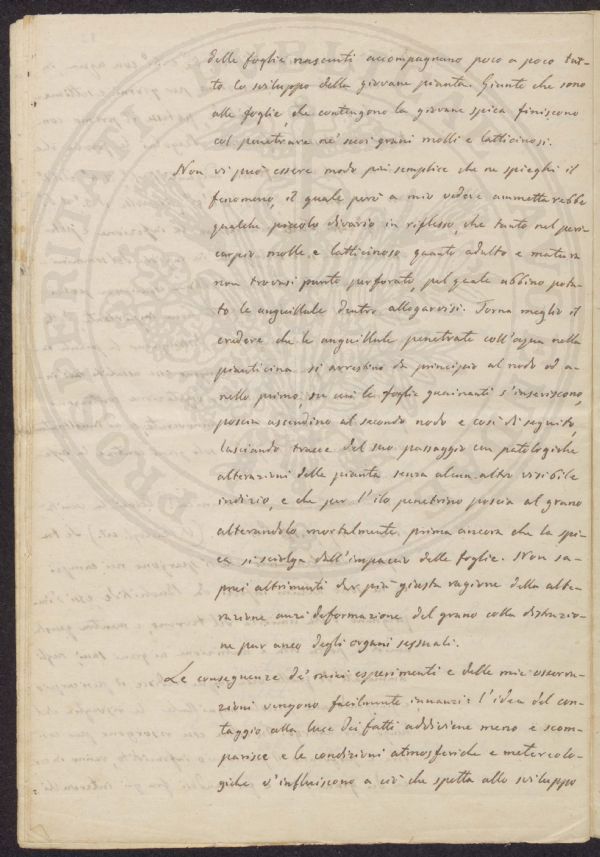 delle foglie nascenti accompagnano poco a poco tut-
to lo sviluppo della giovane pianta. Giunte che sono
alle foglie, che contengono la giovane spica finiscono
col penetrare ne' suoi grani molli e latticinosi.
Non vi può essere modo più semplice che ne spieghi il
fenomeno, il quale però a mio vedere ammetterebbe
qualche piccolo divario in riflesso, che tanto nel peri-
carpio molle e latticinoso quanto adulto e maturo
non trovasi punto perforato, pel quale abbino potu-
to le anguillule dentro allogarvisi. Torna meglio il
credere che le anguillule penetrate coll'acqua nella
pianticina si arrestino da principio al nodo od a-
nello primo, su cui le foglie guainanti s'inseriscono,
poscia ascendino al secondo nodo e così di seguito,
lasciando tracce del suo passaggio con patologiche
alterazioni della pianta senza alcun altro visibile
indizio, e che per l'ilo penetrino poscia al grano
alterandolo mortalmente prima ancora che la spi-
ca si sciolga dall'impaccio delle foglie. Non sa-
prei altrimenti dar più giusta ragione della alte-
razione anzi deformazione del grano colla distruzio-
ne pur anco degli organi sessuali.
Le conseguenze de' miei esperimenti e delle mie osserva-
zioni vengono facilmente innanzi: l'idea del con-
taggio alla luce dei fatti addiviene meno e scom-
parisce e le condizioni atmosferiche e meteorolo-
giche v'influiscono a ciò che spetta allo sviluppo